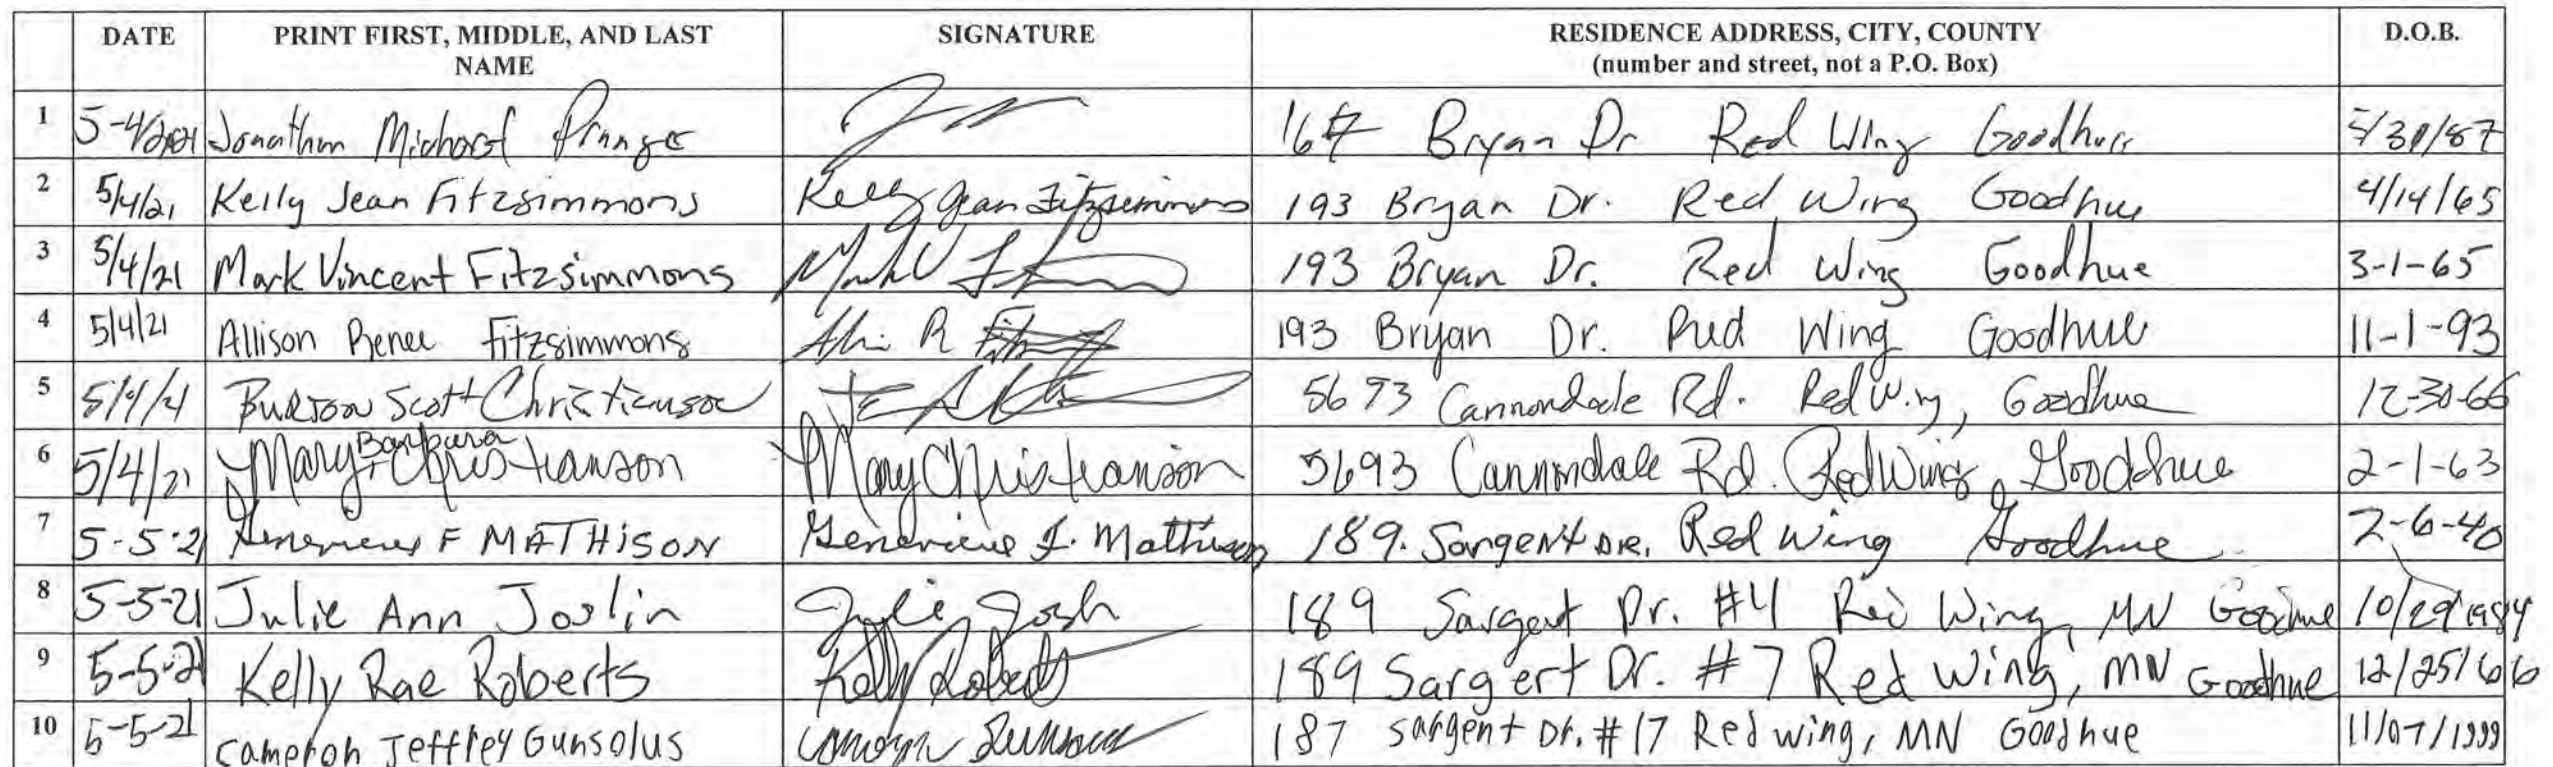 DATE PRINT FIRST, MIDDLE, AND LAST NAME SIGNATURE RESIDENCE ADDRESS, CITY, COUNTY (number and street, not a P.O. Box) D.O.B.
1 5-4/2021 Jonathan Michael Prange Bryan Dr Red Wing Goodhue 5/30/87
2 5/4/21 Kelly Jean Fitzsimmons Kelly Jean Fitzsimmons 193 Bryan Dr. Red Wing Goodhue 4/14/65
3 5/4/21 Mark Vincent Fitzsimmons Mark V 193 Bryan Dr. Red Wing Goodhue 3-1-65
4 5/4/21 Allison Renee Fitzsimmons R 193 Bryan Dr. Red Wing Goodhue 11-1-93
5 5/4/21 Burton Scott Christianson Cannondale Rd. Red Wing, Goodhue 12-30-66
6 5/4/21 Mary Barbara Christianson Mary Christianson 5693 Cannondale Rd. Red Wing, Goodhue 2-1-63
7 5-5-21 Genevieve F MATHISON Genevieve F. Mathison 189. Sargent DR. Red Wing Goodhue 2-6-40
8 5-5-21 Julie Ann Joslin Julie Josli 189 Sargent Dr. #4 Red Wing, MN Goodhue 10/29/1984
9 5-5-21 Kelly Rae Roberts Kelly Roberts 189 Sargent Dr. #7 Red Wing, MN Goodhue 12/25/66
10 5-5-21 Cameron Jeffrey Gunsolus 187 Sargent Dr. #17 Red wing, MN Goodhue 11/07/1999